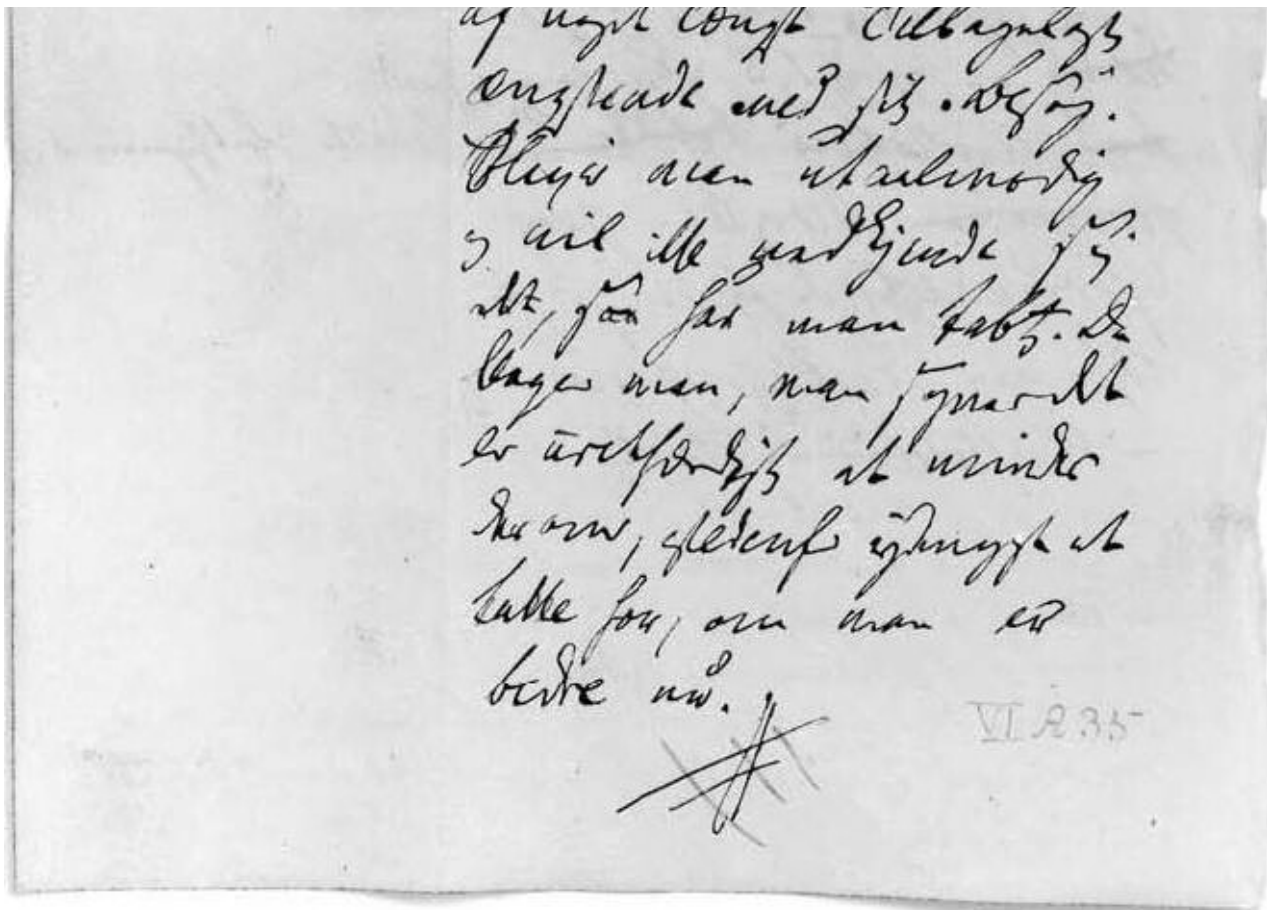 af noget længst Tilbagelagt
ængstende med sit Besøg.
Bliver man utaalmodig
og vil ikke vedkjende sig
det, saa har man tabt. Da
klager man, man synes det
er uretfærdigt at mindes
derom, istedenf. ydmygst at
takke for, om man er
bedre nu.
VI A 35